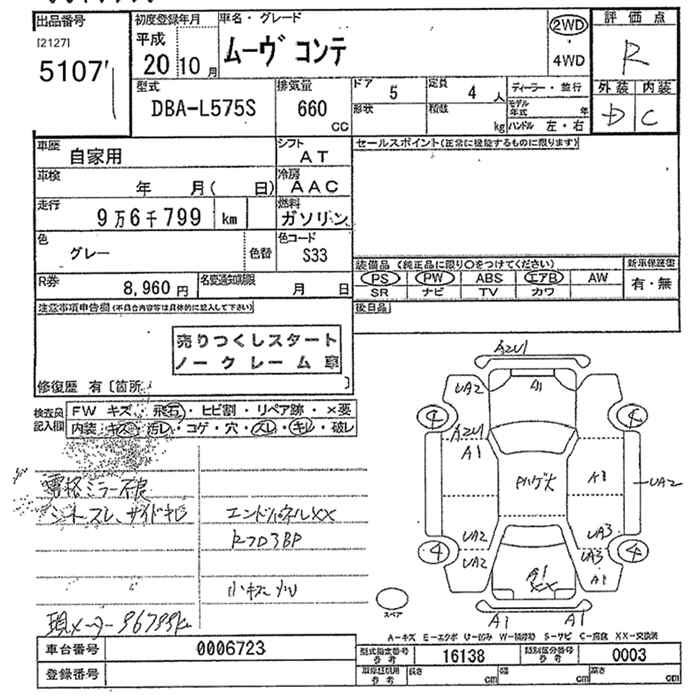 出品番号
[2127]
5107
初度登録年月
平成
20 10 月
車名・グレード
ムーヴ コンテ
2WD
・
4WD
評価点
R
外装 内装
D C
型式
DBA-L575S
排気量
660
CC
ドア 5
定員 4 人
形状
積数 kg
ディーラー・並行
モデル年式 年
ハンドル 左・右
車歴
自家用
シフト
AT
車検
年 月( 日)
冷房
AAC
走行
9万6千799 km
燃料
ガソリン
色
グレー
色替
色コード
S33
R券
8,960円
名変通知期限
月 日
セールスポイント(正常に機能するものに限ります)
装備品 (純正品に限り○をつけてください)
PS PW ABS エアB AW
SR ナビ TV カワ
新車保証書
有・無
後日品
注意事項申告欄(不具合内容等は具体的に記入して下さい)
売りつくしスタート
ノークレーム 車
修復歴 有〔箇所 〕
検査員
記入欄
FW キズ・飛石・ヒビ割・リペア跡・×要
内装・キズ・汚レ・コゲ・穴・スレ・キレ・破レ
電格ミラー不良
シートスレ、サイドキレ
エンドパネルXX
現メーター 96799km
AZU1
UA2
A1
4
4
AZU1
A1
Pハゲ大
UA2
UA2
UA2
UA3
UA3
A1
4
4
A1
XX
A1
A1
スペア
A-キズ E-エクボ U-凹み W-補修跡 S-サビ C-腐食 XX-交換済
車台番号
0006723
登録番号
型式指定番号
参考
16138
類別区分番号
参考
0003
長さ cm
幅 cm
高さ cm